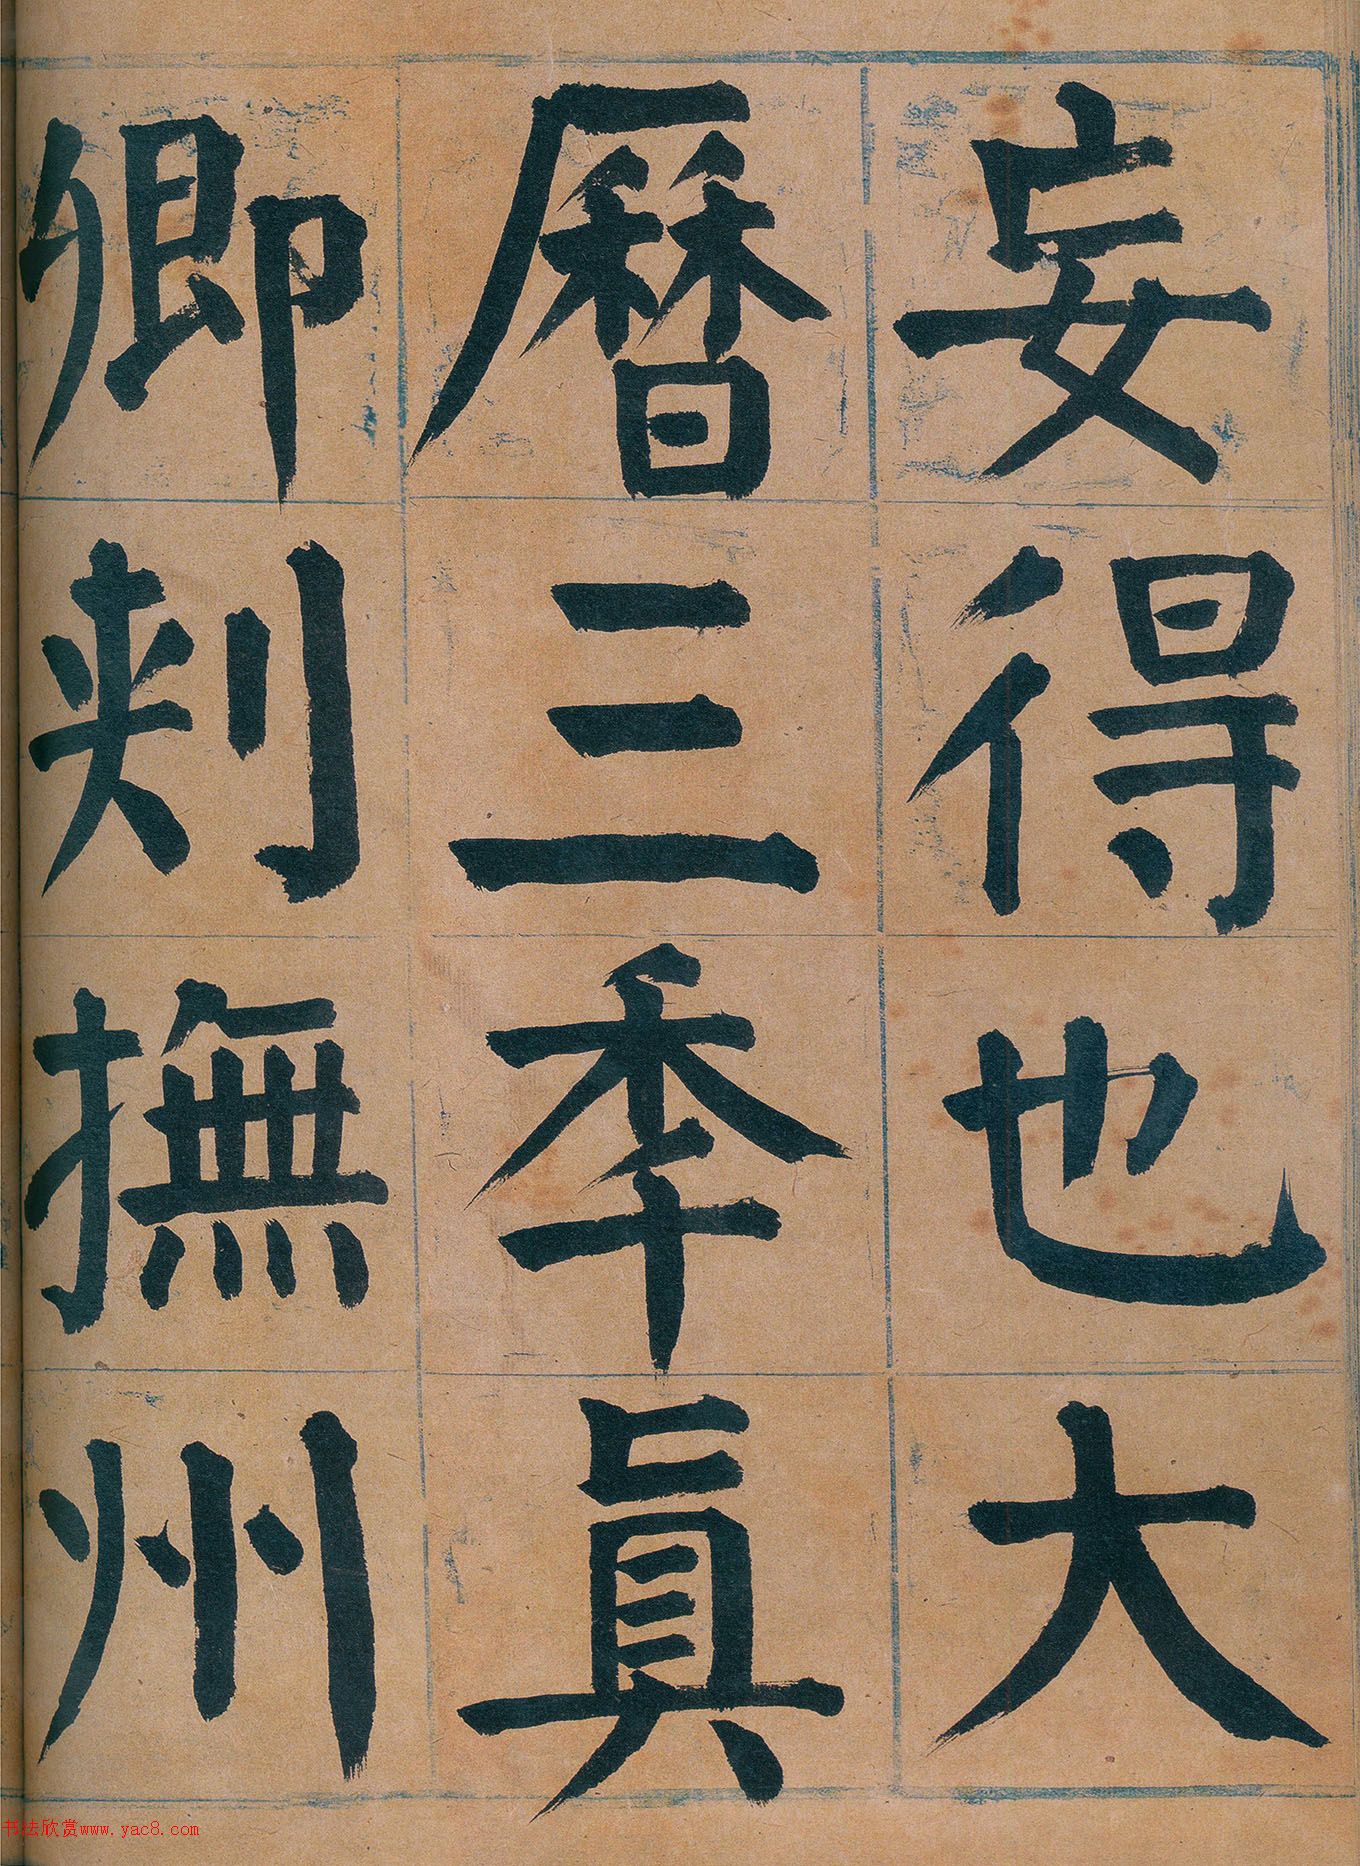 妄得也大
曆三秊真
卿刾撫州
书法欣赏www.yac8.com